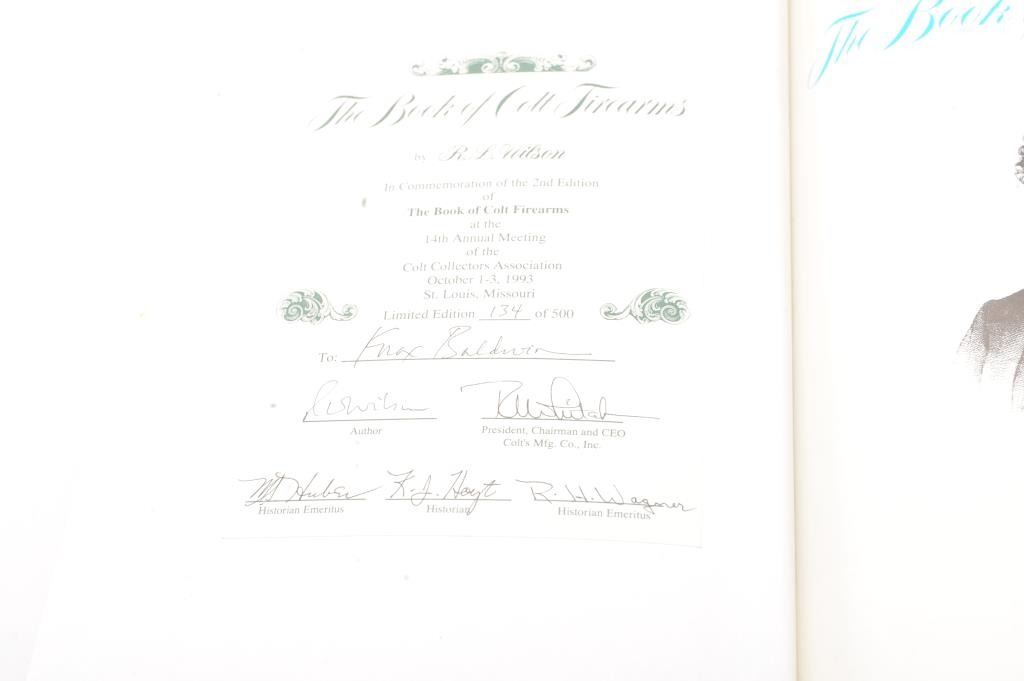 The Book of Colt Firearms
by R.L. Wilson
In Commemoration of the 2nd Edition
of
The Book of Colt Firearms
at the
14th Annual Meeting
of the
Colt Collectors Association
October 1-3, 1993
St. Louis, Missouri
Limited Edition 134 of 500
To: Knox Baldwin
RL Wilson
Author
President, Chairman and CEO
Colt's Mfg. Co., Inc.
M Huber K. J. Hoyt R. H. Wagner
Historian Emeritus Historian Historian Emeritus
The Book